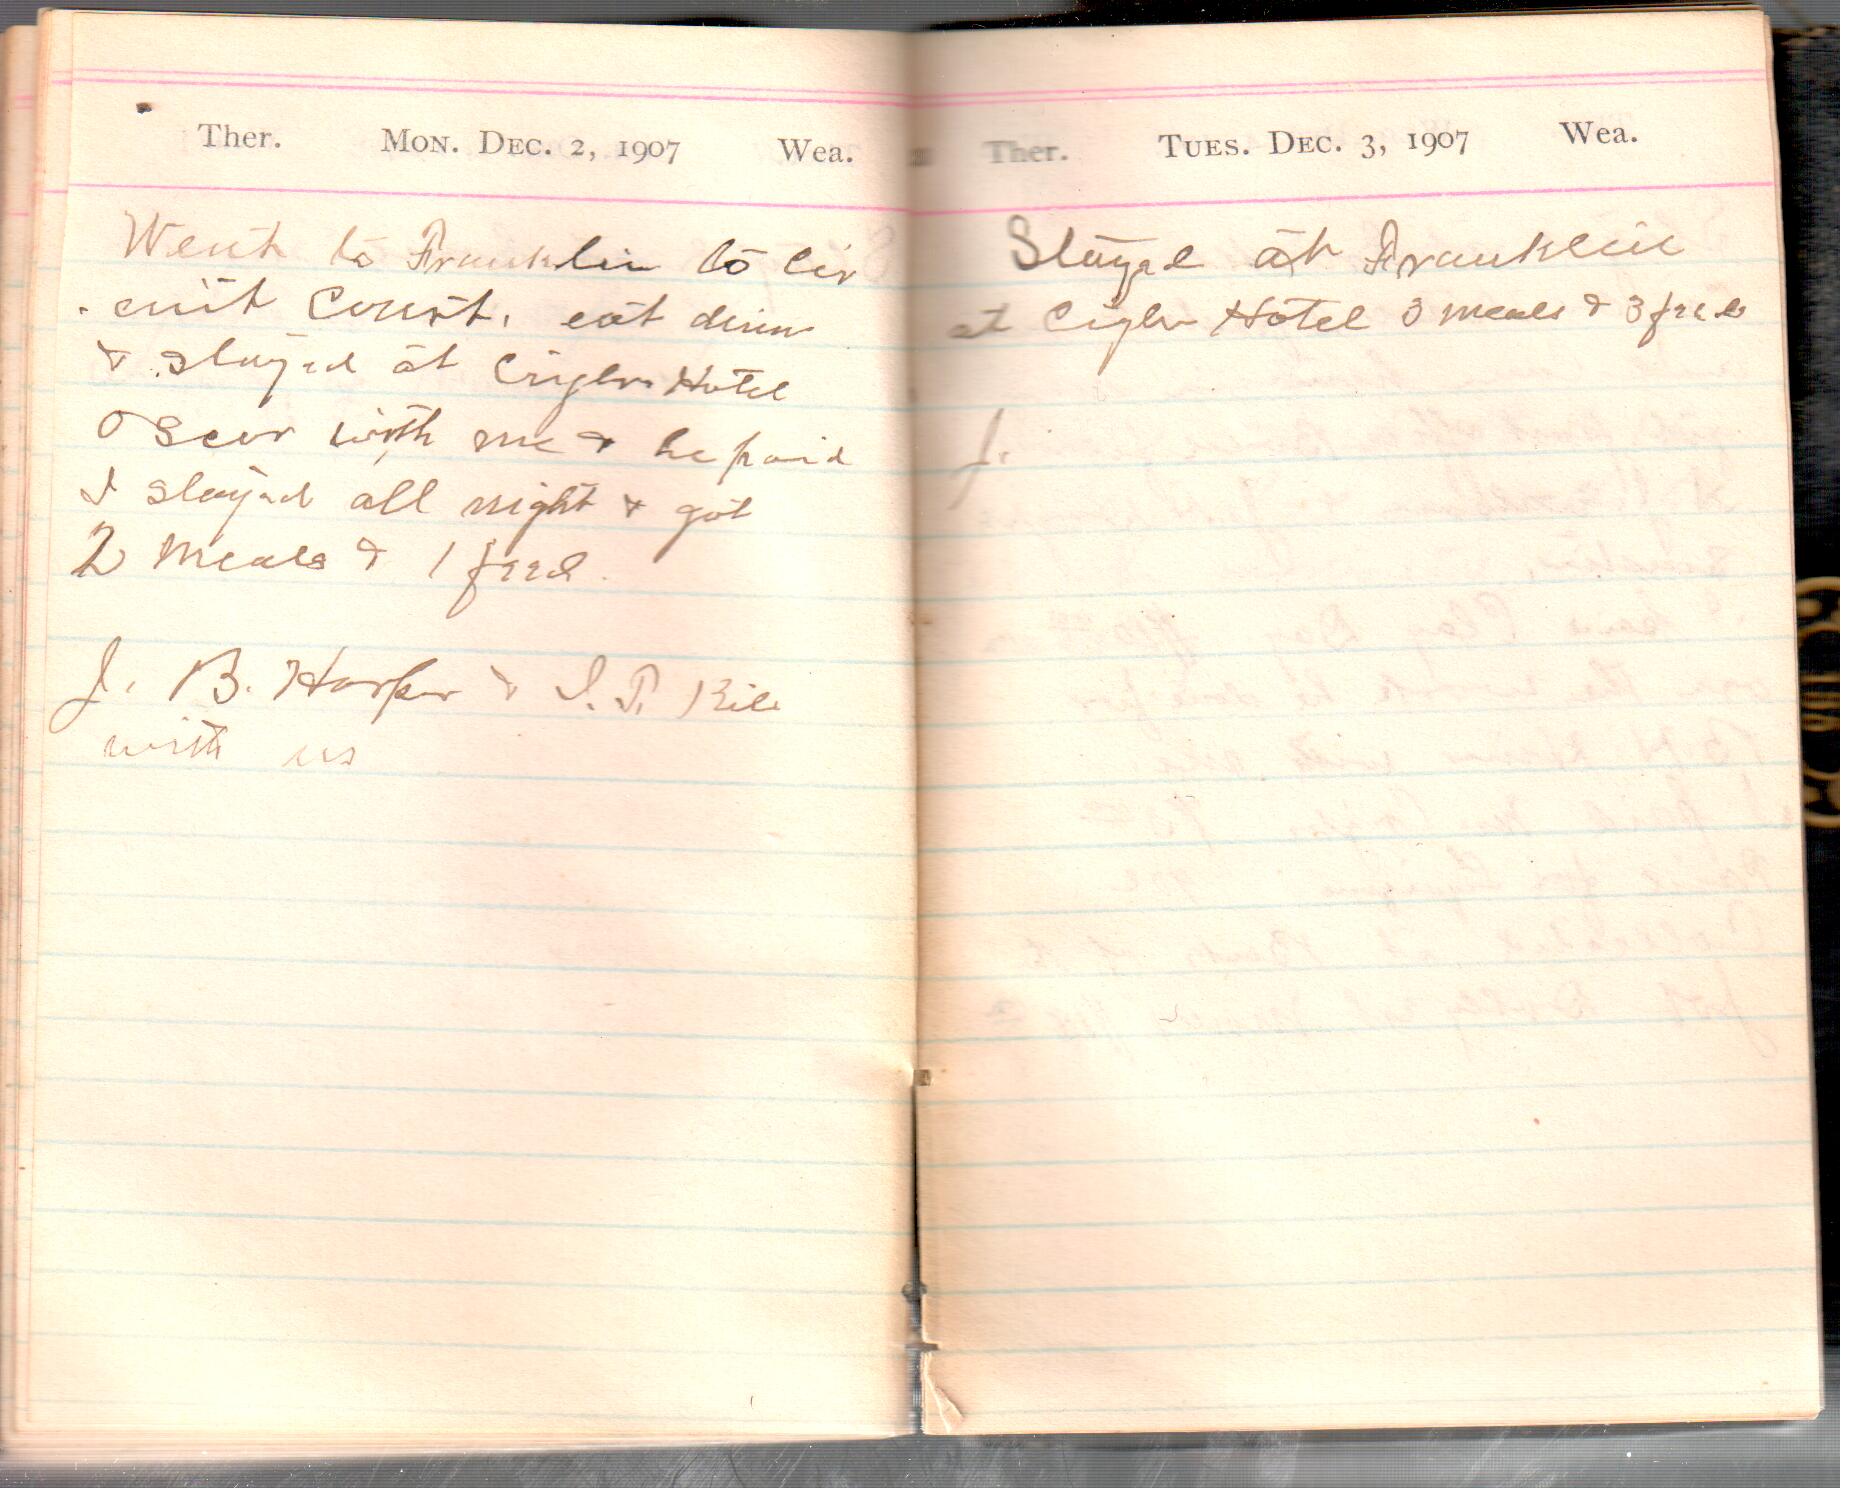 Ther. Mon. Dec. 2, 1907 Wea.
Went to Franklin to Cir
cuit Court. eat dinn
& stayed at Crigler Hotel
Oscar with me & he paid
I stayed all night & got
2 meals & 1 feed.
J. B. Harper & I. T. Kile
with us
Ther. Tues. Dec. 3, 1907 Wea.
Stayed at Franklin
at Cigler Hotel 3 meals & 3 feed
J.